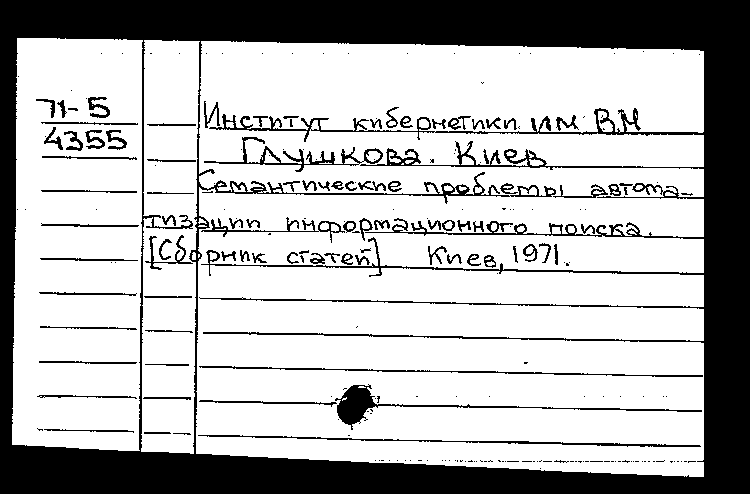 71-5
4355
Институт кибернетики им В.М
Глушкова. Киев.
Семантические проблемы автома-
тизации информационного поиска.
[Сборник статей] Киев, 1971.